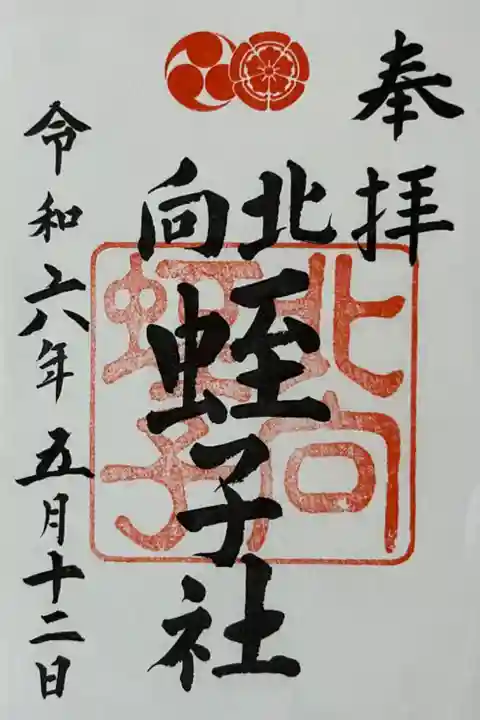 奉拝
北向
蛭子社
北向
蛭子
令和六年五月十二日